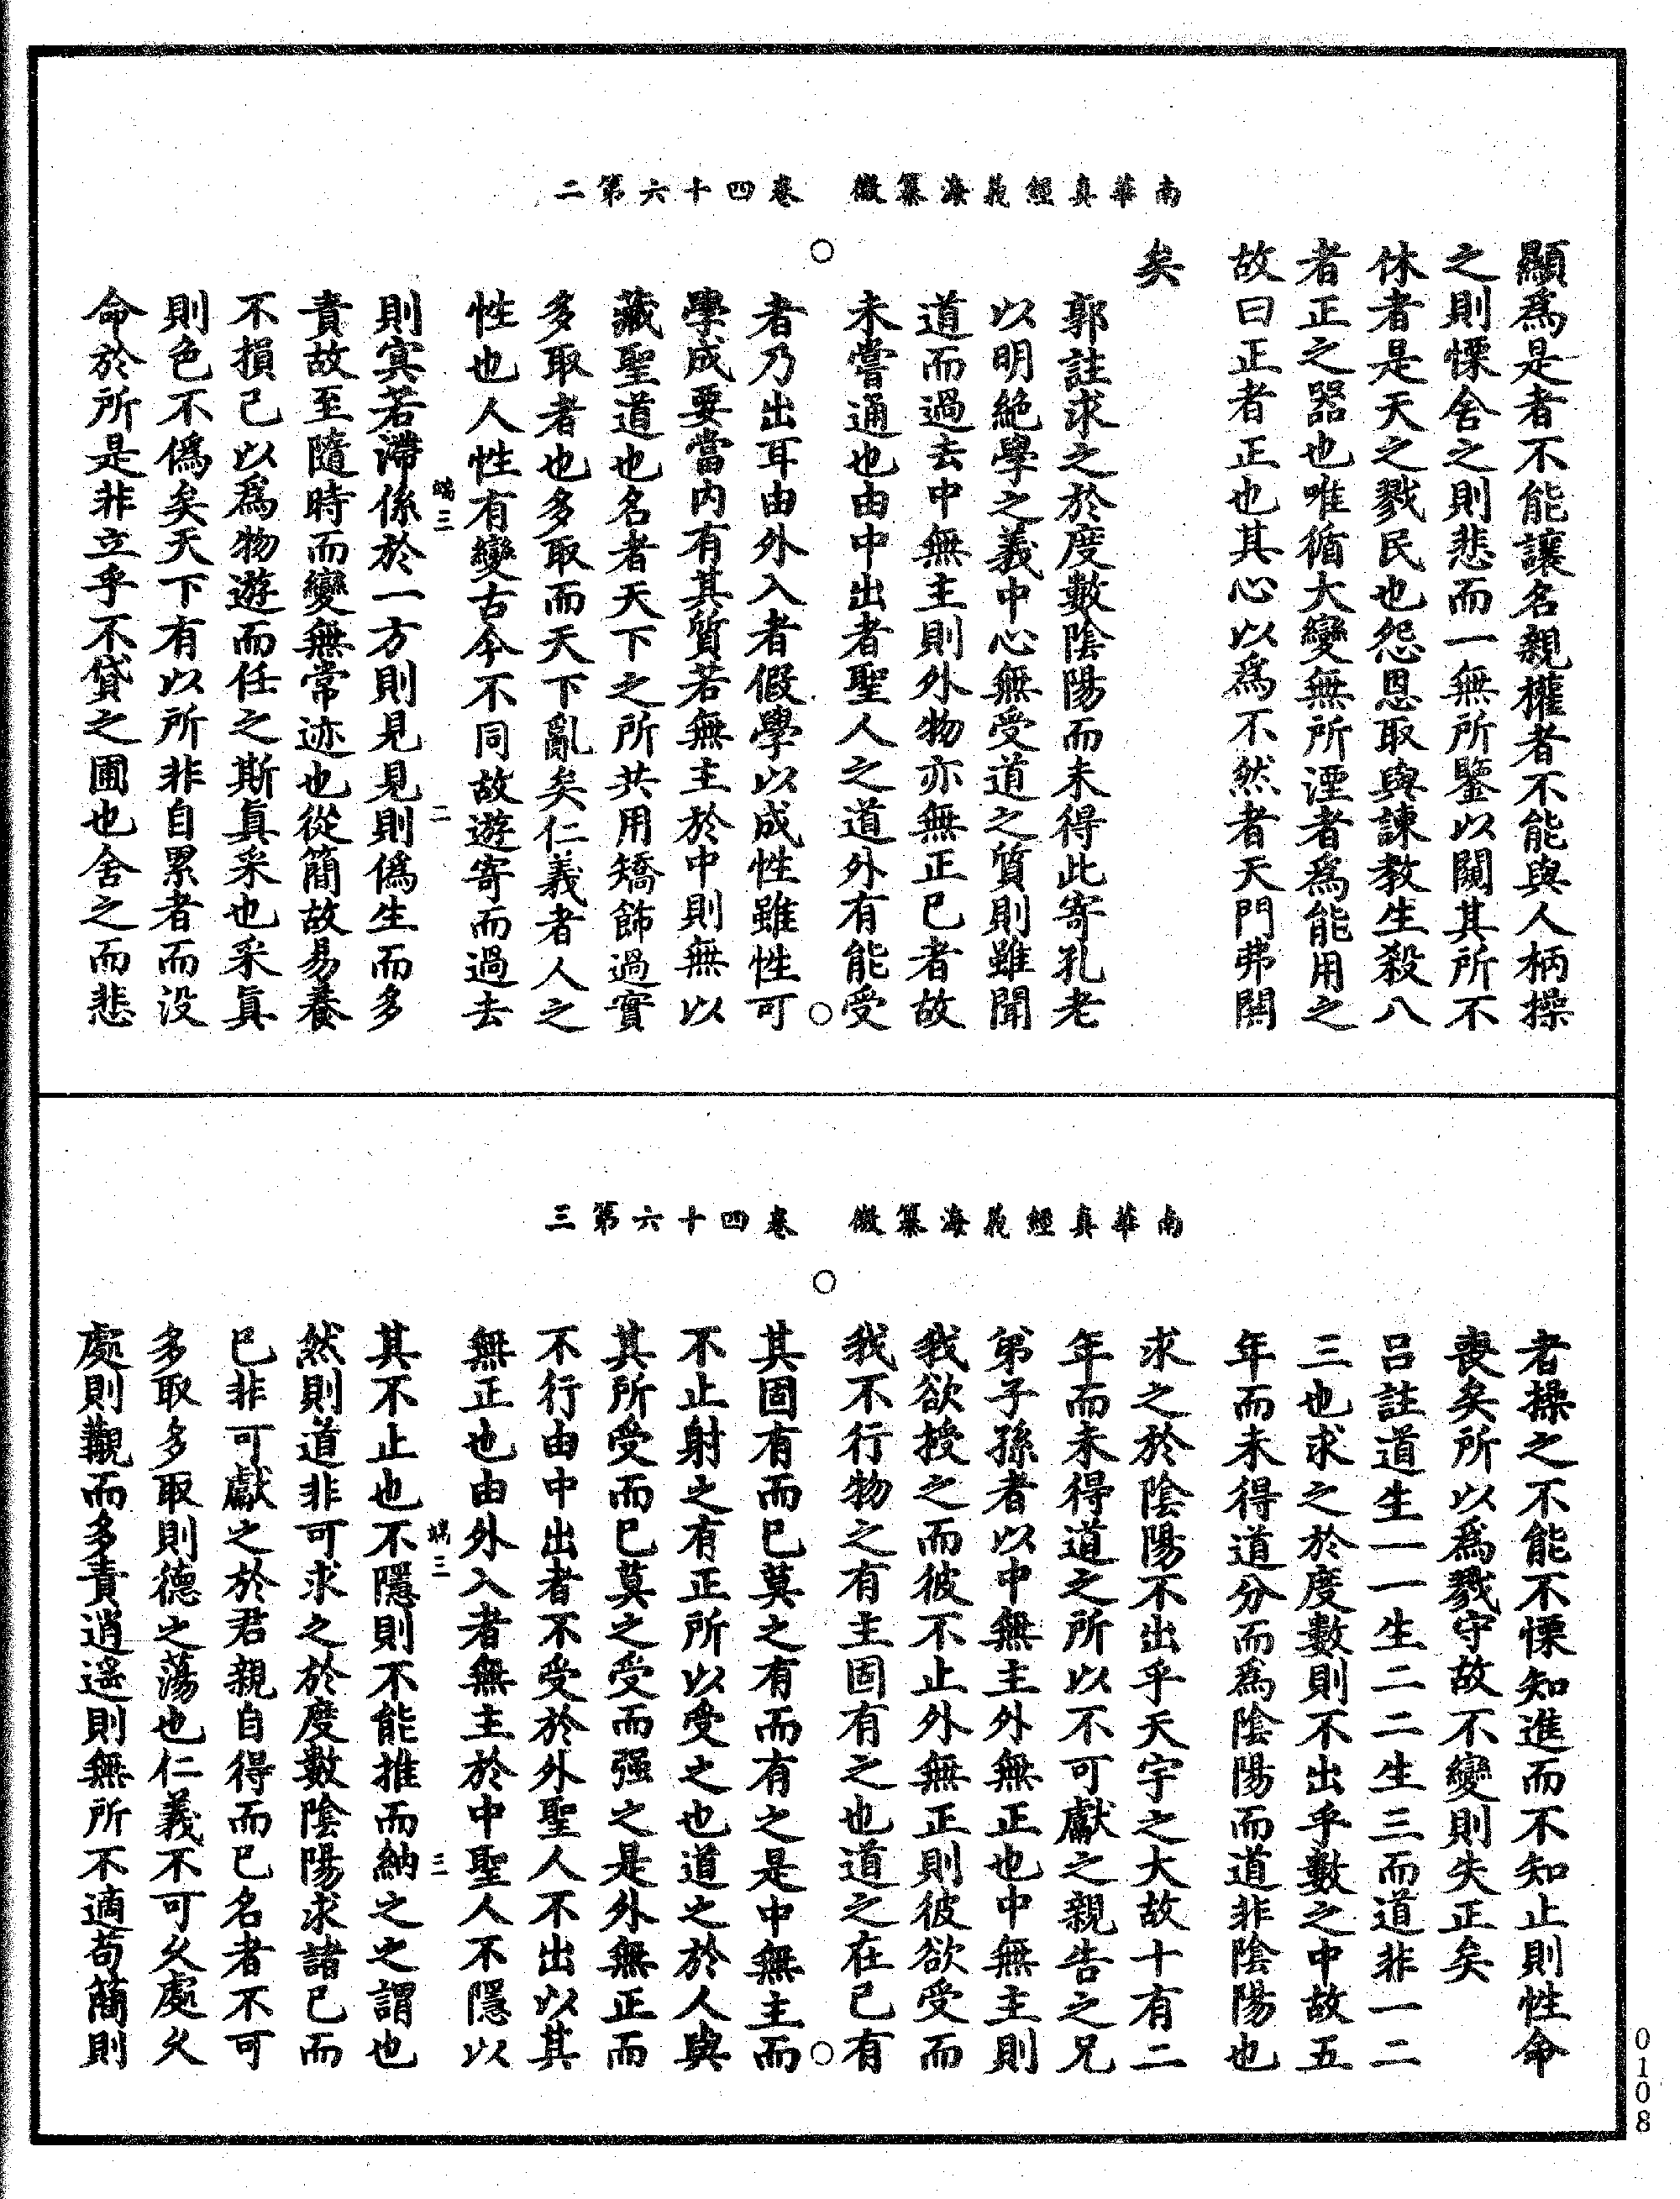 南華真經義海纂微　卷四十六第二
顯為是者不能讓名親權者不能與人柄操
之則慄舍之則悲而一無所鑒以闚其所不
休者是天之戮民也怨恩取與諫教生殺八
者正之器也唯循大變無所湮者為能用之
故曰正者正也其心以為不然者天門弗開
矣
郭註求之於度數陰陽而未得此寄孔老
以明絕學之義中心無受道之質則雖聞
道而過去中無主則外物亦無正已者故
未嘗通也由中出者聖人之道外有能受
○　○
者乃出耳由外入者假學以成性雖性可
學成要當內有其質若無主於中則無以
藏聖道也名者天下之所共用矯飾過實
多取者也多取而天下亂矣仁義者人之
性也人性有變古今不同故遊寄而過去
端三　二
則冥若滯係於一方則見見則偽生而多
責故至隨時而變無常迹也從簡故易養
不損己以為物遊而任之斯真采也采真
則色不偽矣天下有以所非自累者而沒
命於所是非立乎不貸之圃也舍之而悲
南華真經義海纂微　卷四十六第三
者操之不能不慄知進而不知止則性命
喪矣所以為戮守故不變則失正矣
呂註道生一一生二二生三而道非一二
三也求之於度數則不出乎數之中故五
年而未得道分而為陰陽而道非陰陽也
求之於陰陽不出乎天宇之大故十有二
年而未得道之所以不可獻之親告之兄
弟子孫者以中無主外無正也中無主則
我欲授之而彼不止外無正則彼欲受而
我不行物之有主固有之也道之在已有
○　○
其固有而已莫之有而有之是中無主而
不止射之有正所以受之也道之於人與
其所受而已莫之受而强之是外無正而
不行由中出者不受於外聖人不出以其
無正也由外入者無主於中聖人不隱以
端三　三
其不止也不隱則不能推而納之之謂也
然則道非可求之於度數陰陽求諸已而
已非可獻之於君親自得而已名者不可
多取多取則德之蕩也仁義不可久處久
處則覯而多責逍遙則無所不適苟簡則
0108